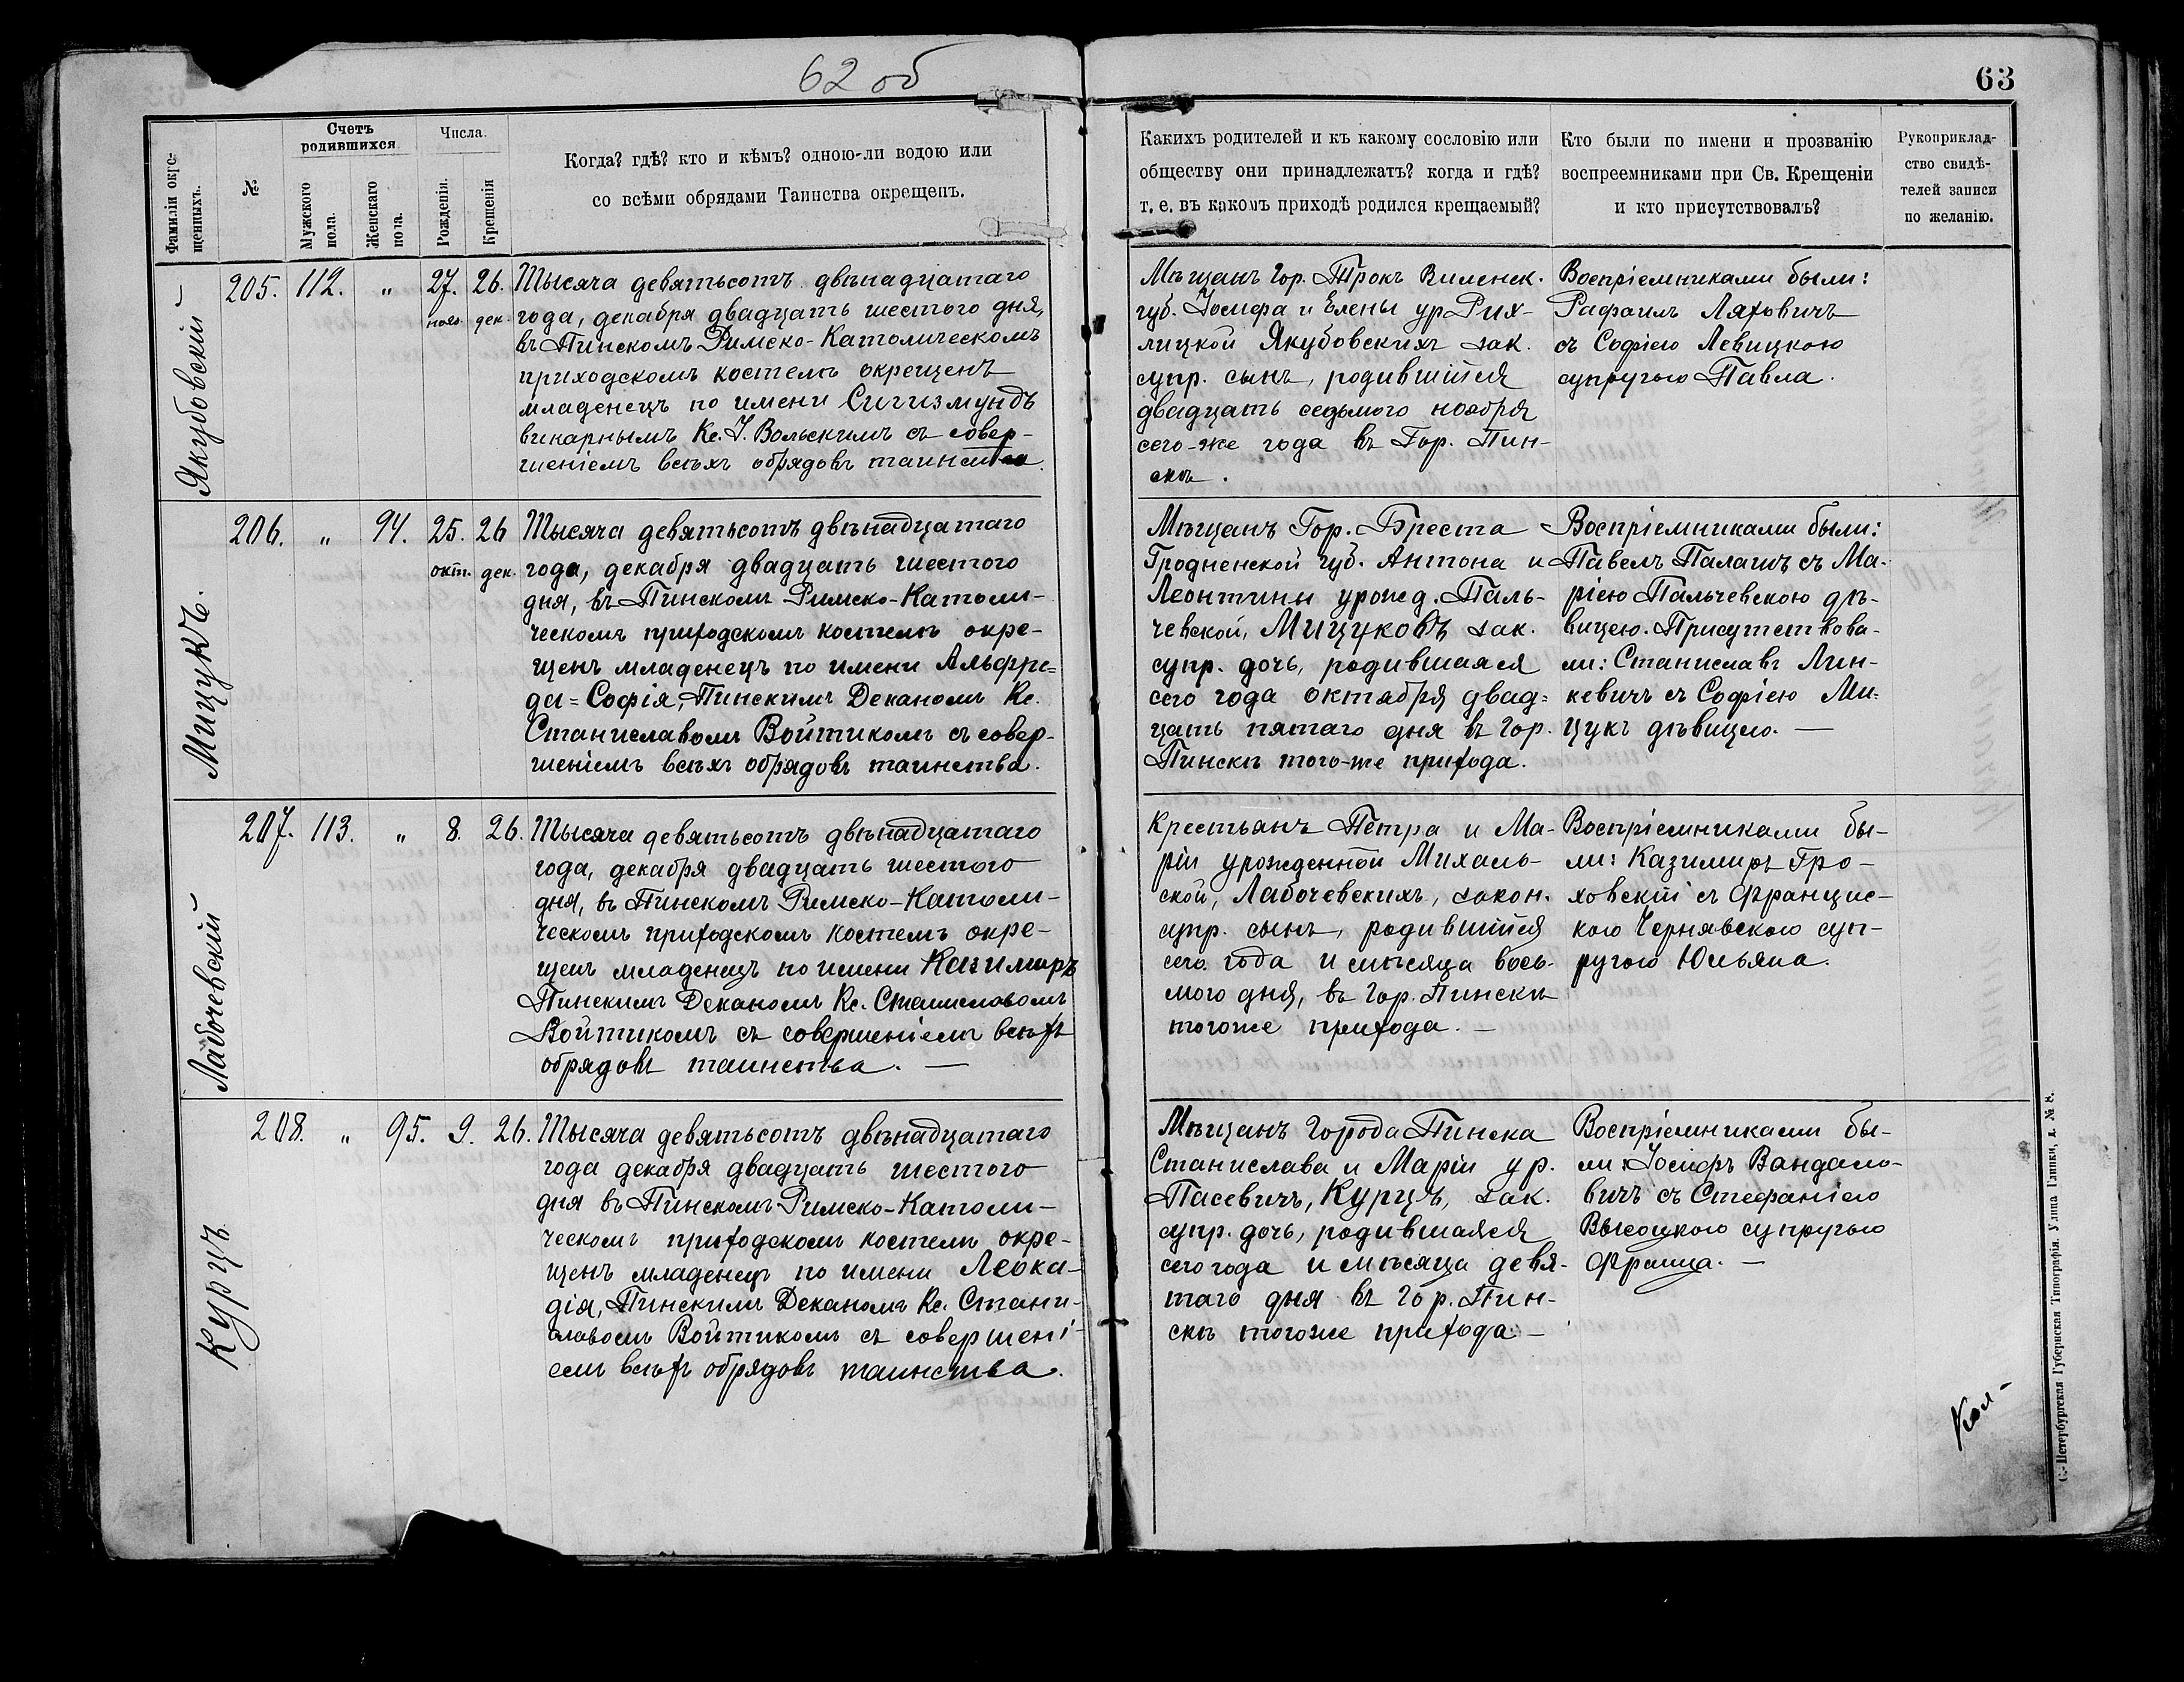 62 об
63
Фамиліи окре-
щенныхъ.
№
Счетъ
родившихся
Мужского
пола.
Женскаго
пола.
Числа.
Рожденія.
Крещенія
Когда? гдѣ? кто и кѣмъ? одною-ли водою или
со всѣми обрядами Таинства окрещенъ.
Какихъ родителей и къ какому сословію или
обществу они принадлежатъ? когда и гдѣ?
т. е. въ какомъ приходѣ родился крещаемый?
Кто были по имени и прозванію
воспреемниками при Св. Крещеніи
и кто присутствовалъ?
Рукоприклад-
ство свидѣ-
телей записи
по желанію.
Якубовскій
205. 112. „ 27. 26.
нояб. дек.
Тысяча девятьсотъ двѣнадцатаго
года, декабря двадцать шестого дня,
въ Пинскомъ Римско-Католическомъ
приходскомъ костелѣ окрещенъ
младенецъ по имени Сигизмундъ
викарнымъ Кс. І. Вольскимъ съ совер-
шеніемъ всѣхъ обрядовъ таинства.
Мѣщанъ Гор. Трокъ Виленск.
губ. Іосифа и Елены ур Рих-
лицкой Якубовскихъ зак.
супр. сынъ, родившійся
двадцать седьмого ноября
сего-же года въ Гор. Пин-
скѣ.
Воспріемниками были:
Рафаилъ Ляховичъ
съ Софіею Левицкою
супругою Павла.
Мицукъ.
206. „ 94. 25. 26
окт. дек.
Тысяча девятьсотъ двѣнадцатаго
года, декабря двадцать шестого
дня, въ Пинскомъ Римско-Католи-
ческомъ приходскомъ костелѣ окре-
щенъ младенецъ по имени Альфре-
да=Софія, Пинскимъ Деканомъ Кс.
Станиславомъ Войтикомъ съ совер-
шеніемъ всѣхъ обрядовъ таинства.
Мѣщанъ Гор. Бреста
Гродненской губ. Антона и
Леонтины урожд. Паль-
чевской, Мицуковъ зак.
супр. дочь, родившаяся
сего года октября двад=
цать пятаго дня въ Гор.
Пинскѣ того-же прихода.
Воспріемниками были:
Павелъ Палашъ съ Ма-
ріею Пальчевскою дѣ-
вицею. Присутствова-
ли: Станиславъ Лин-
кевичъ съ Софіею Ми-
цукъ дѣвицею. —
Лабочевскій
207. 113. „ 8. 26.
Тысяча девятьсотъ двѣнадцатаго
года, декабря двадцать шестого
дня, въ Пинскомъ Римско-Католи-
ческомъ приходскомъ костелѣ окре-
щенъ младенецъ по имени Казимиръ
Пинскимъ Деканомъ Кс. Станиславомъ
Войтикомъ съ совершеніемъ всѣхъ
обрядовъ таинства. —
Крестьянъ Петра и Ма-
ріи урожденной Михаль-
ской, Лабочевскихъ, закон.
супр. сынъ, родившійся
сего года и мѣсяца вось-
мого дня, въ Гор. Пинскѣ
тогоже прихода. —
Воспріемниками бы-
ли: Казимиръ Гро-
ховскій съ Францис-
кою Чернявскою суп-
ругою Юльяна.
Курцъ
208. „ 95. 9. 26.
Тысяча девятьсотъ двѣнадцатаго
года декабря двадцать шестого
дня въ Пинскомъ Римско-Католи-
ческомъ приходскомъ костелѣ окре-
щенъ младенецъ по имени Леока-
дія, Пинскимъ Деканомъ Кс. Стани-
славомъ Войтикомъ съ совершені-
емъ всѣхъ обрядовъ таинства.
Мѣщанъ Города Пинска
Станислава и Маріи ур.
Пасевичъ, Курцъ, зак.
супр. дочь, родившаяся
сего года и мѣсяца девя-
таго дня въ Гор. Пин-
скѣ тогоже прихода. —
Воспріемниками бы-
ли: Іосифъ Вандало-
вичъ съ Стефаніею
Высоцкою супругою
Франца. —
С.-Петербургская Губернская Типографія. Улица Глинки, д. № 8.